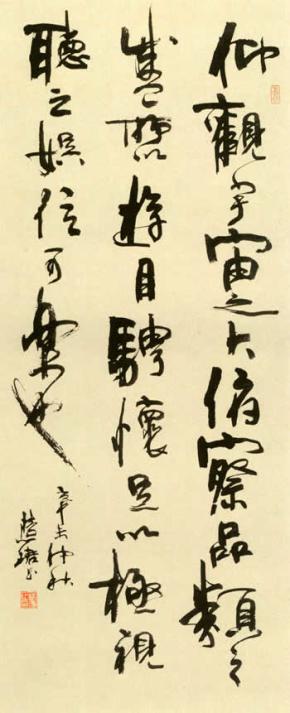 仰觀宇宙之大俯察品類之
盛所以遊目騁懷足以極視
聽之娛信可樂也
辛未仲秋